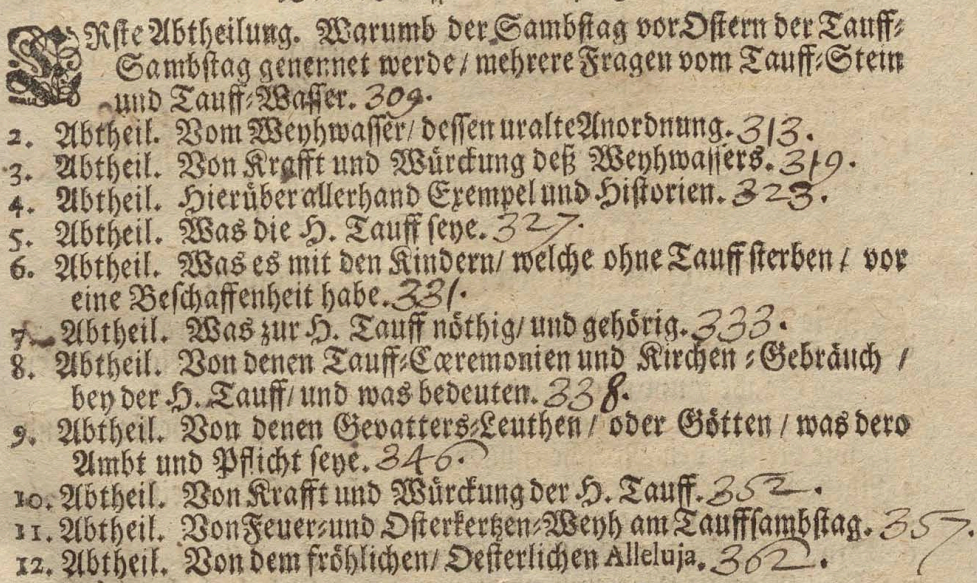 ERste Abtheilung. Warumb der Sambstag vor Ostern der Tauff-
Sambstag genennet werde / mehrere Fragen vom Tauff-Stein
und Tauff-Wasser. 309.
2. Abtheil. Vom Weyhwasser / dessen uralte Anordnung. 313.
3. Abtheil. Von Krafft und Würckung deß Weyhwassers. 319.
4. Abtheil. Hierüber allerhand Exempel und Historien. 323.
5. Abtheil. Was die H. Tauff seye. 327.
6. Abtheil. Was es mit den Kindern / welche ohne Tauff sterben / vor
eine Beschaffenheit habe. 331.
7. Abtheil. Was zur H. Tauff nöthig / und gehörig. 333.
8. Abtheil. Von denen Tauff-Cæremonien und Kirchen-Gebräuch /
bey der H. Tauff / und was bedeuten. 338.
9. Abtheil. Von denen Gevatters-Leuthen / oder Götten / was dero
Ambt und Pflicht seye. 346.
10. Abtheil. Von Krafft und Würckung der H. Tauff. 352.
11. Abtheil. Von Feuer- und Osterkertzen-Weyh am Tauffsambstag. 357.
12. Abtheil. Von dem fröhlichen / Oesterlichen Alleluja. 362.